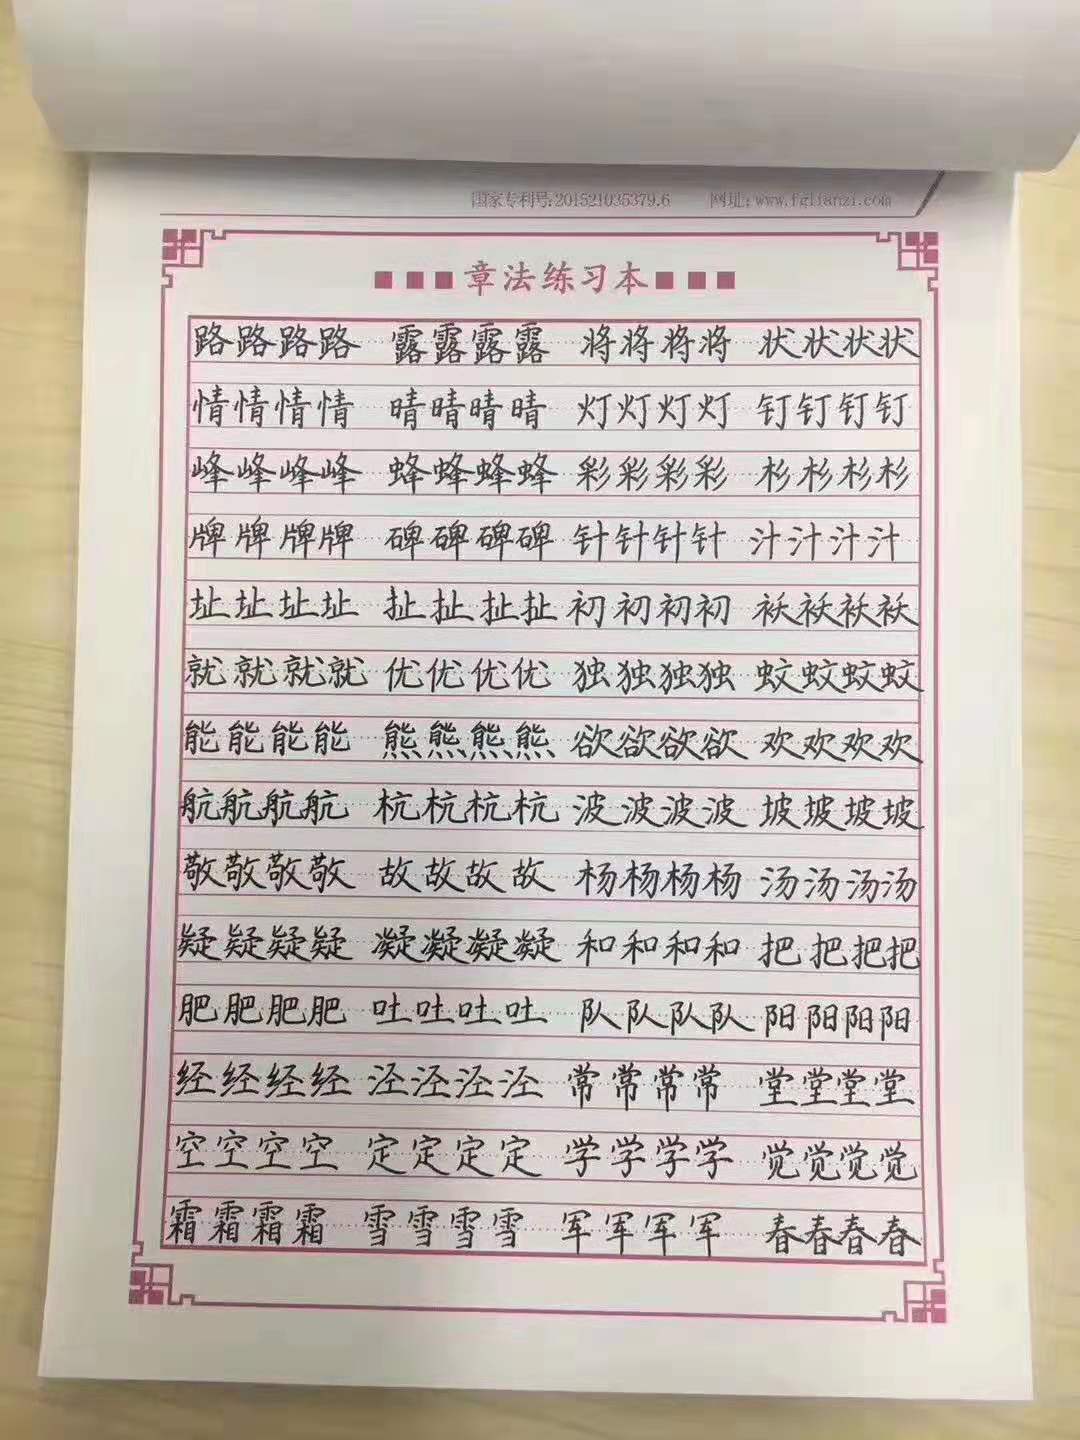 国家专利号:201521035379.6 网址:www.fglianzi.com
章法练习本
路路路路 露露露露 将将将将 状状状状
情情情情 晴晴晴晴 灯灯灯灯 钉钉钉钉
峰峰峰峰 蜂蜂蜂蜂 彩彩彩彩 杉杉杉杉
牌牌牌牌 碑碑碑碑 针针针针 汁汁汁汁
址址址址 扯扯扯扯 初初初初 袄袄袄袄
就就就就 优优优优 独独独独 蚊蚊蚊蚊
能能能能 熊熊熊熊 欲欲欲欲 欢欢欢欢
航航航航 杭杭杭杭 波波波波 坡坡坡坡
敬敬敬敬 故故故故 杨杨杨杨 汤汤汤汤
疑疑疑疑 凝凝凝凝 和和和和 把把把把
肥肥肥肥 吐吐吐吐 队队队队 阳阳阳阳
经经经经 泾泾泾泾 常常常常 堂堂堂堂
空空空空 定定定定 学学学学 觉觉觉觉
霜霜霜霜 雪雪雪雪 军军军军 春春春春